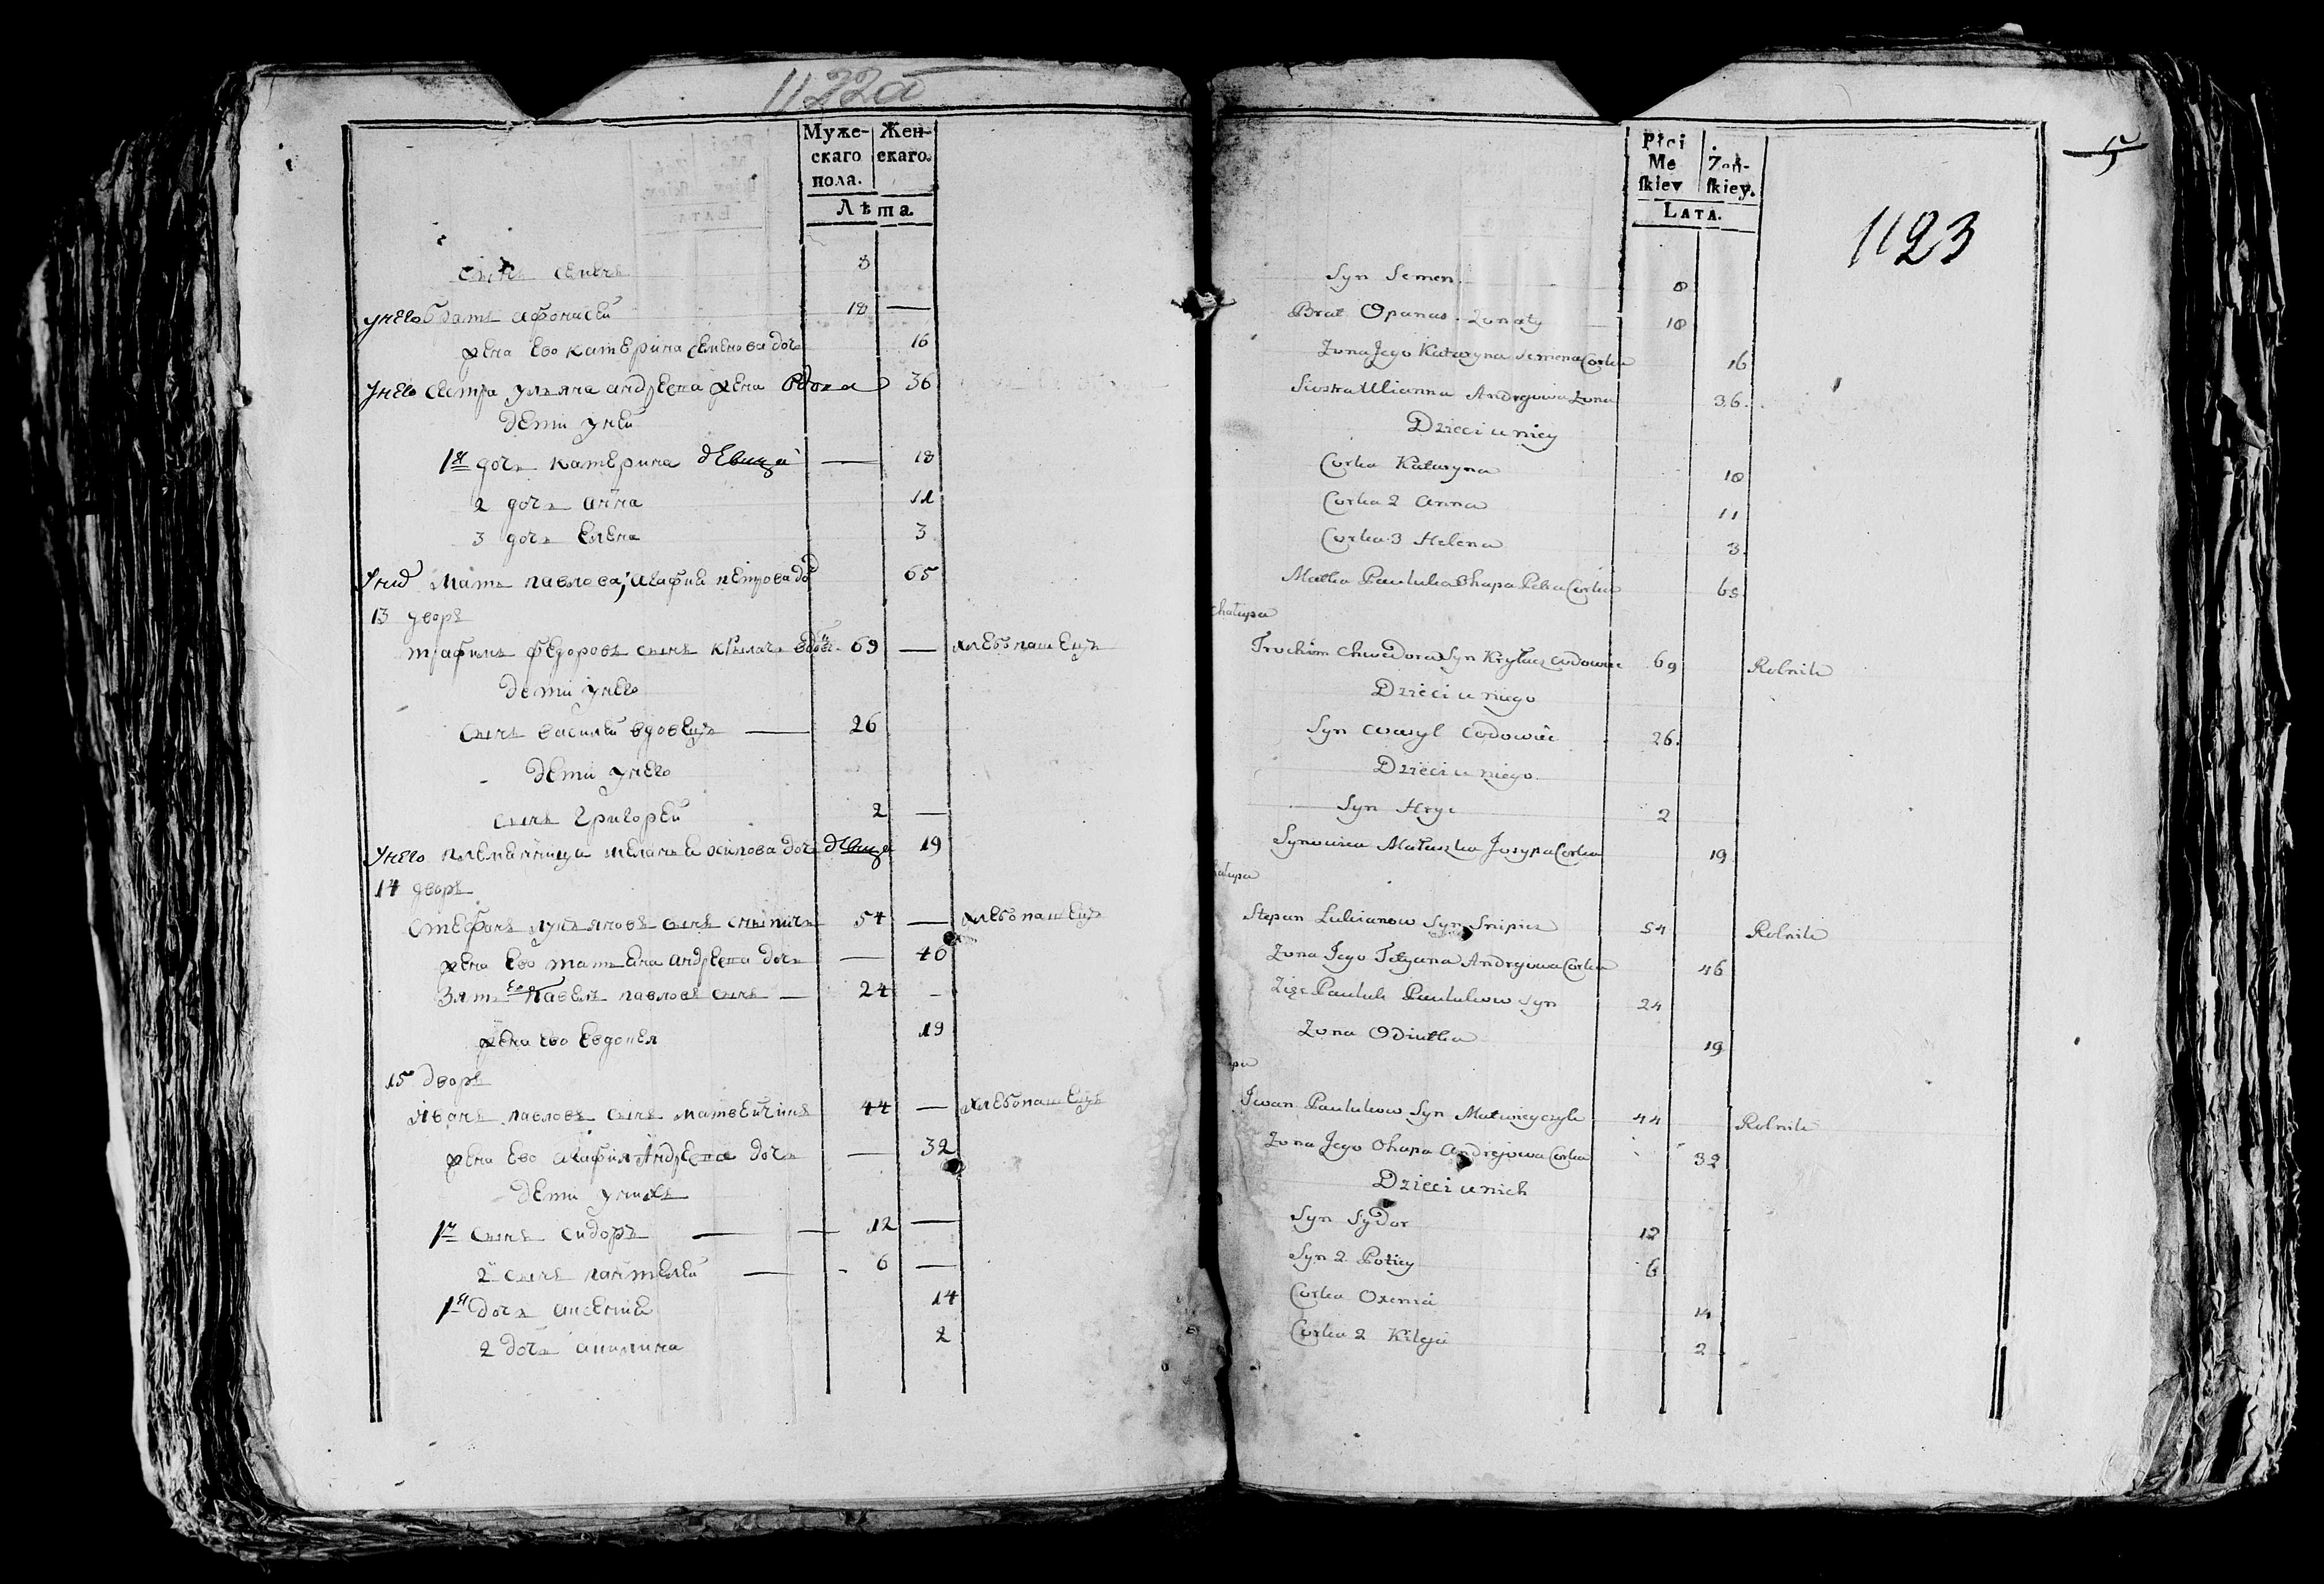 1122а
Муже- Жен-
скаго скаго.
пола.
Лѣта.
сынъ семенъ 8
унего братъ афонасей 18 —
жена ево катерина семенова дочь 16
унего сестра ульяна андреева жена вдова 36
дети уней
1я дочь катерина девица — 18
2 дочь анна 11
3 дочь елена 3
мать павлова, агафия петрова до 65
13 дворъ
трафимъ федоровъ сынъ крылачъ 69 — хлебопашецъ
дети унего
сынъ василей вдовецъ — 26
дети унего
сынъ григорей 2 —
унего племянница осипова дочь девица 19
14 дворъ
стефанъ лукьяновъ сынъ снипичъ 54 — хлебопашецъ
жена ево татьяна андреева дочь — 46
зять ево павелъ павловъ сынъ — 24 —
жена ево евдокея 19
15 дворъ
иванъ павловъ сынъ матвейчикъ 44 — хлебопашецъ
жена ево агафия андреева дочь — 32
дети унихъ
1й сынъ сидоръ — 12 —
2й сынъ пантелей — 6 —
1я дочь аксения 14
2 дочь акилина 2
5
Płci
Me Żeń-
ſkiey ſkiey.
LATA.
1123
Syn Semen 8
Brat Opanas Zonaty 18
Zona Jego Kataryna Semena Corka 16
Siostra Ulianna Andrejowa Zona 36.
Dzieci u niey
Corka Kataryna 18
Corka 2 Anna 11
Corka 3 Helena 3.
Matka Pauluka Ohapa Petra Corka 65
chałupa
Trochim Chwedora Syn Kryłacz Wdowiec 69 Rolnik
Dzieci u niego
Syn Wasyl Wdowiec 26.
Dzieci u niego
Syn Hryc 2
Synowica Małaszka Josypa Corka 19
ałupa
Stepan Lukianow Syn Snipicz 54 Rolnik
Zona Jego Tetyana Andrejowa Corka 46
Zięc Pauluk Paulukow Syn 24
Zona Odiutka 19
pa
Iwan Paulukow Syn Matwieyczyk 44 Rolnik
Zona Jego Ohapa Andrejowa Corka 32
Dzieci u nich
Syn Sydor 12
Syn 2 6
Corka Oxenia 14
Corka 2 Kilyja 2